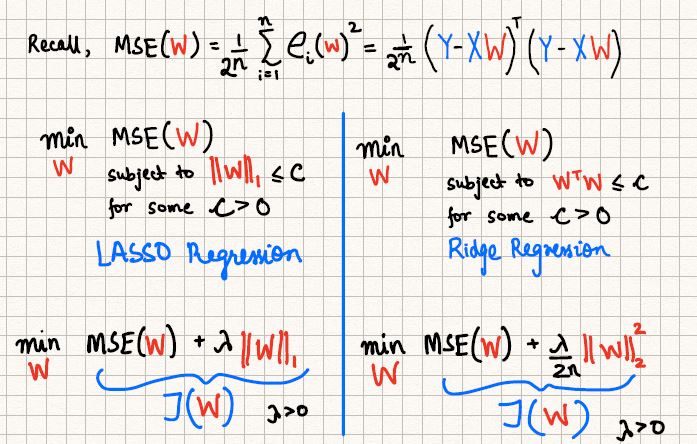 Recall, MSE(W) = 1/2n ∑ᵢ₌₁ⁿ eᵢ(w)² = 1/2n (Y-XW)ᵀ(Y-XW)
min W MSE(W)
subject to ||W||₁ ≤ C
for some C>0
LASSO Regression
min W MSE(W)
subject to WᵀW ≤ C
for some C>0
Ridge Regression
min W MSE(W) + λ||W||₁
J(W) λ>0
min W MSE(W) + λ/2n ||W||₂²
J(W) λ>0